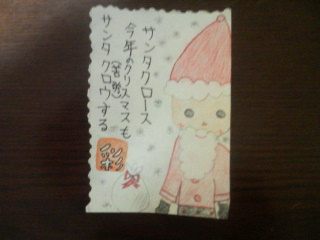 サンタクロース
今年のクリスマスも
(苦労)
サンタクロウする
彩